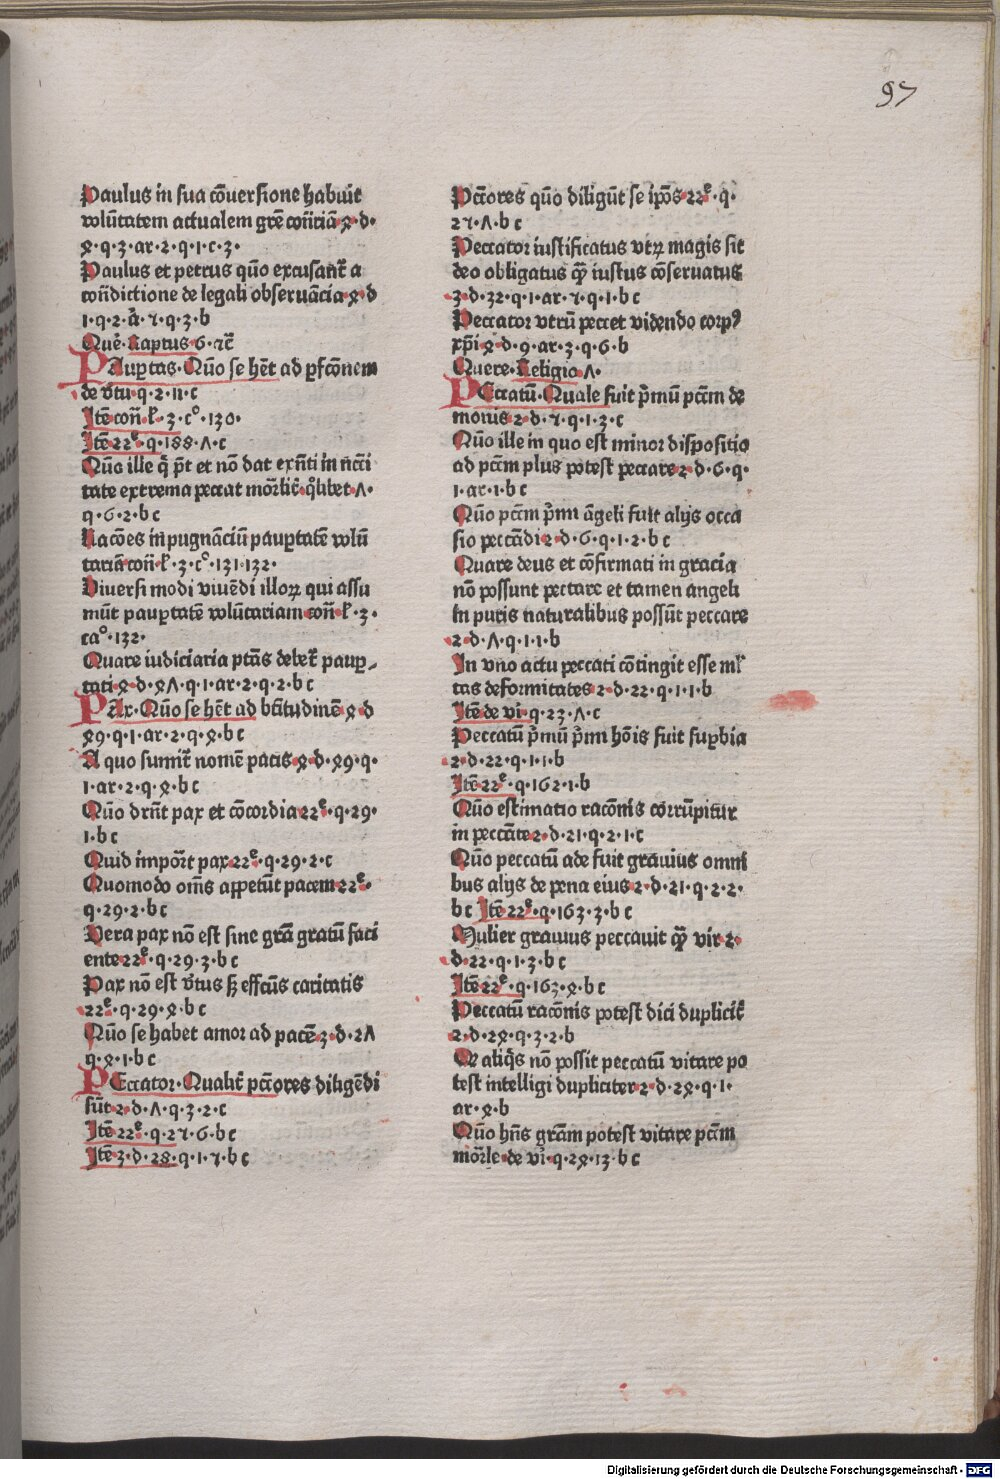 97
Paulus in sua cōuersione habuit
volūtatem actualem grē cōn̄riā ꝝ·d·
ꝝ·q·3·ar·2·q·1·c·3·
Paulus et petrus quō excusanť a
con̄dictione de legali obseruācia ꝝ·d
1·q·2·ā·7·q·3·b
Querē·Raptus·6·7c̄
PAuꝑtas·Quō se hēt ad ꝑfcōnem
de v̄tu·q·2·11·c
Itē con̄·l̄·3·c°·130·
Itē 22ᵉ·q·188·Λ·c
Quō ille q̇ p̄t et nō dat exn̄ti in nc̄ci
tate extrema peccat mōrlit̄·q̊libet·Λ·
q·6·2·b c
Racōes inpugnāciū pauꝑtatē volū
tariā con̄·l̄·3·c°·131·132·
Diuersi modi viuēdi illoꝝ qui assu
mūt pauꝑtatē volūtariam con̄·l̄·3·
ca°·132·
Quare iudiciaria ptās debeť pauꝑ
tati ꝝ·d·ꝝΛ·q·1·ar·2·q·2·b c
PAx·Quō se hēt ad btītudinē ꝝ·d
ꝝ9·q·1·ar·2·q·ꝝ·b c
A quo sumiť nomē pacis ꝝ·d·ꝝ9·q·
1·ar·2·q·ꝝ·b c
Quō drn̄t pax et cōcordia 22ᵉ·q·29·
1·b c
Quid impor̄t pax 22ᵉ·q·29·2·c
Quomodo om̄s appetūt pacem 22ᵉ·
q·29·2·b c
Vera pax nō est sine grā gratū faci
ente 22ᵉ·q·29·3·b c
Pax nō est v̄tus sꝫ effcūs caritatis
22ᵉ·q·29·ꝝ·b c
Quō se habet amor ad pacē 3·d·2Λ
q·ꝝ·1·b c
PEccator·Qualiť pccōres diligēdi
sūt 2·d·Λ·q·3·2·c
Itē 22ᵉ·q·27·6·b c
Itē 3·d·28·q·1·7·b c
Pccōres quō diligūt se ip̄os 22ᵉ·q·
27·Λ·b c
Peccator iustificatus vtꝝ magis sit
deo obligatus qꝫ̄ iustus cōseruatus
3·d·32·q·1·ar·7·q·1·b c
Peccator vtrū peccet videndo corpꝰ
xp̄i ꝝ·d·9·ar·3·q·6·b
Quere·Religio Λ·
PEccatū·Quale fuit p̄mū pccm̄ de
monis 2·d·7·q·1·3·c
Quō ille in quo est minor dispositio
ad pccm̄ plus potest peccare 2·d·6·q·
1·ar·1·b c
Quō pccm̄ p̄mi āgeli fuit alijs occa
sio peccādi 2·d·6·q·1·2·b c
Quare deus et cōfirmati in gracia
nō possunt peccare et tamen angeli
in puris naturalibus possūt peccare
2·d·Λ·q·1·1·b
In vno actu peccati cōtingit esse ml̄
tas deformitates 2·d·22·q·1·1·b
Itē de vi·q·23·Λ·c
Peccatū p̄mū p̄mi hōis fuit suꝑbia
2·d·22·q·1·1·b
Itē 22ᵉ·q·162·1·b
Quō estimatio racōnis corrūpitur
in peccāte 2·d·21·q·2·1·c
Quō peccatū ade fuit grauius omni
bus alijs de pena eius 2·d·21·q·2·2·
b c Itē 22ᵉ·q·163·3·b c
Mulier grauius peccauit qꝫ̄ vir 2·
d·22·q·1·3·b c
Itē 22ᵉ·q·163·ꝝ·b c
Peccatū racōnis potest dici dupliciť
2·d·2ꝝ·q·3·2·b
Q aliq̇s nō possit peccatū vitare po
test intelligi dupliciter 2·d·2ꝝ·q·1·
ar·ꝝ·b
Quō hn̄s grām potest vitare pccm̄
mōrle·de vi·q·2ꝝ·13·b c
Digitalisierung gefördert durch die Deutsche Forschungsgemeinschaft - DFG